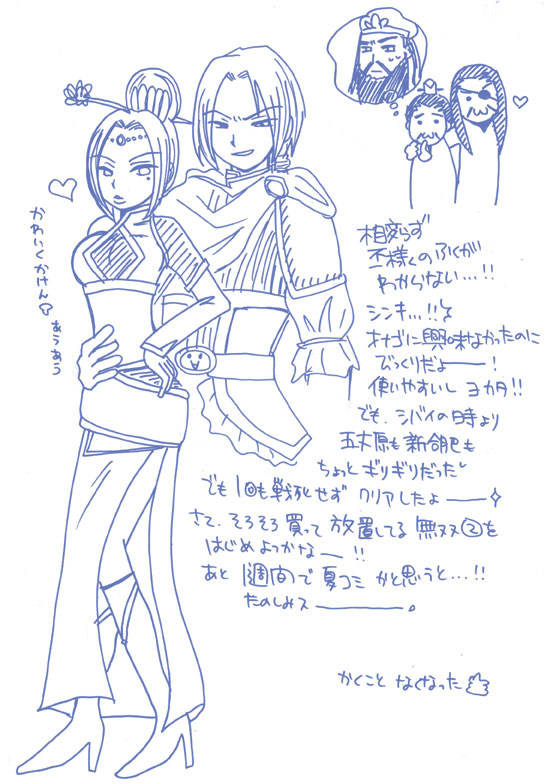 かわいくかけん
あうあう
相変らず
丕様くのふくが
わからない…!!
シンキ…!!
オナゴに興味なかったのに
びっくりだよ――!
使いやすいし ヨカタ!!
でも、シバイの時より
五丈原も新合肥も
ちょっとギリギリだった
でも1回も戦死せず クリアしたよ――
さて、そろそろ買って放置してる無双②を
はじめよっかなー!!
あと1週間で夏コミかと思うと…!!
たのしみス――。
かくこと なくなった